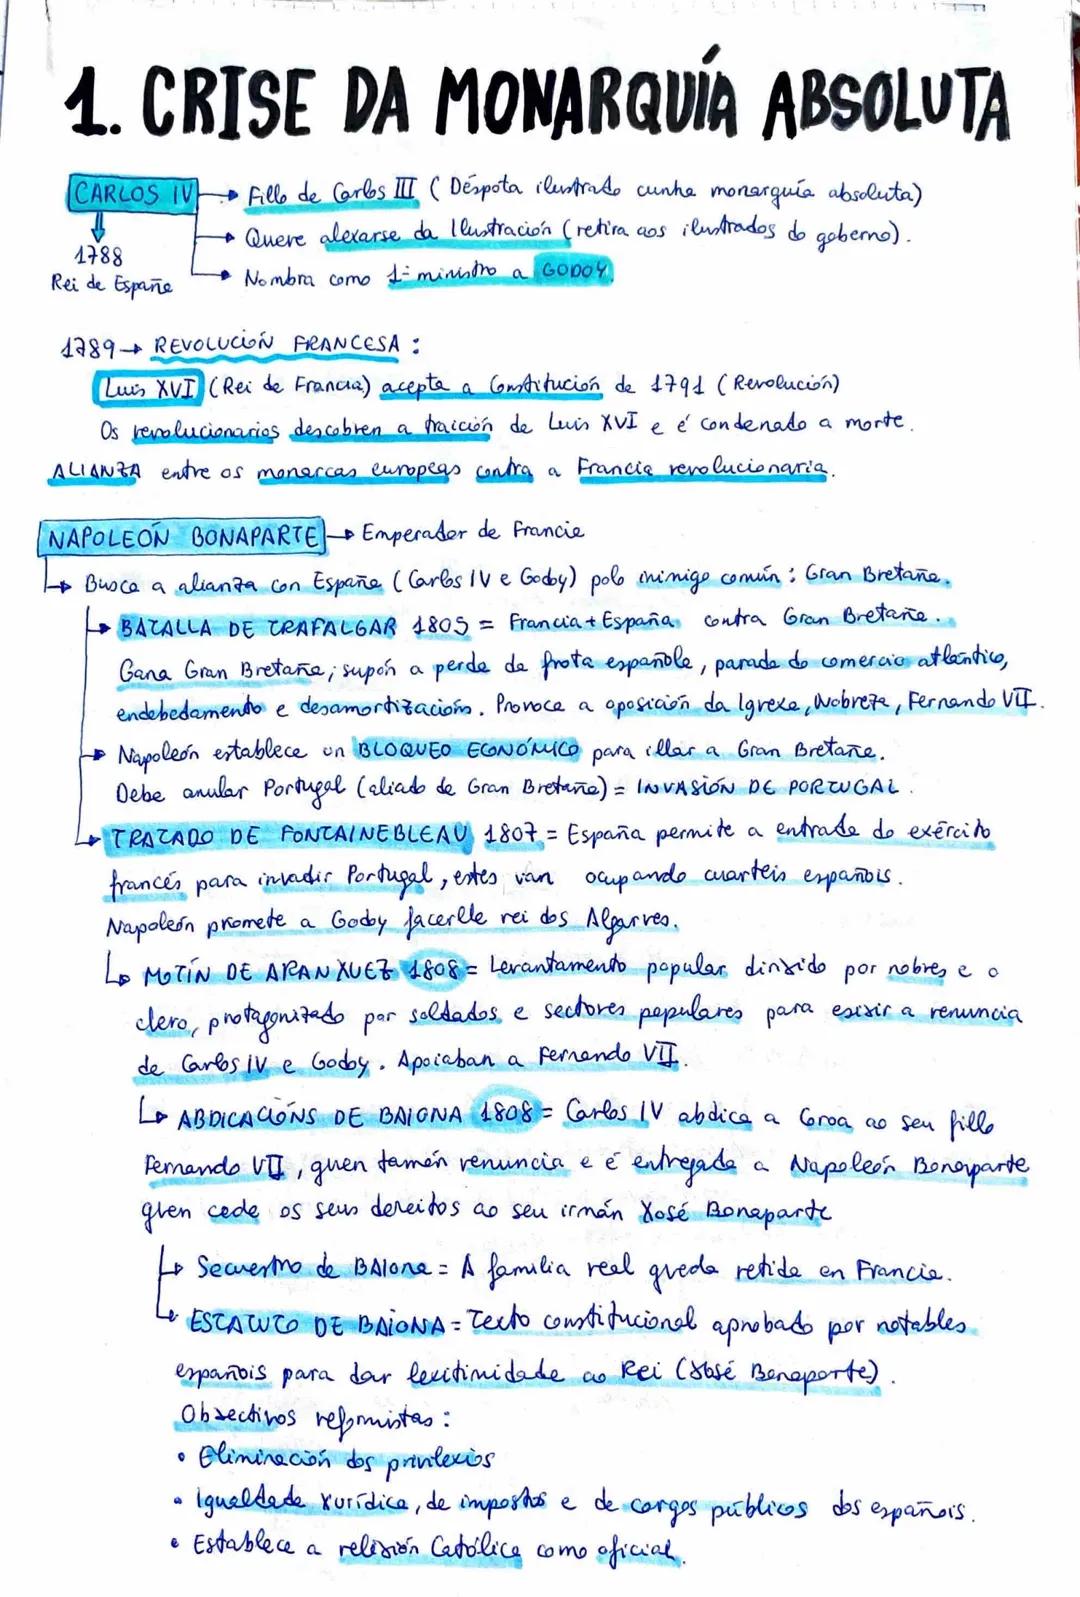 1. CRISE DA MONARQUÍA ABSOLUTA
CARLOS IV → Fillo de Carlos III ( Déspota ilustrado cunha monarquía absoluta)
→ Quere alexarse da Ilustración (retira aos ilustrados do goberno).
1788
Rei de España
→ Nombra como 1º ministro a GODOY.
1789 → REVOLUCIÓN FRANCESA :
Luis XVI (Rei de Francia) acepta a Constitución de 1791 (Revolución)
Os revolucionarios descobren a traición de Luis XVI e é condenado a morte.
ALIANZA entre os monarcas europeos contra a Francia revolucionaria.
NAPOLEÓN BONAPARTE → Emperador de Francia
→ Busca a alianza con España (Carlos IV e Godoy) polo inimigo común : Gran Bretaña.
→ BATALLA DE TRAFALGAR 1805 = Francia + España contra Gran Bretaña.
Gana Gran Bretaña; supón a perda da frota española, parada do comercio atlántico,
endebedamento e desamortizacións. Provoca a oposición da Igrexa, Nobreza, Fernando VII.
→ Napoleón establece un BLOQUEO ECONÓMICO para illar a Gran Bretaña.
Debe anular Portugal (aliado de Gran Bretaña) = INVASIÓN DE PORTUGAL.
→ TRATADO DE FONTAINEBLEAU 1807 = España permite a entrada do exército
francés para invadir Portugal, estes van ocupando cuarteis españois.
Napoleón promete a Godoy facerlle rei dos Algarves.
↳ MOTÍN DE ARANXUEZ 1808 = Levantamento popular dirixido por nobres e o
clero, protagonizado por soldados e sectores populares para esixir a renuncia
de Carlos IV e Godoy. Apoiaban a Fernando VII.
↳ ABDICACIÓNS DE BAIONA 1808 = Carlos IV abdica a Coroa ao seu fillo
Fernando VII, quen tamén renuncia e é entregada a Napoleón Bonaparte
quen cede os seus dereitos ao seu irmán Xosé Bonaparte
↳ Secuestro de BAIona = A familia real queda retida en Francia.
↳ ESTATUTO DE BAIONA = Texto constitucional aprobado por notables
españois para dar lexitimidade ao Rei (Xosé Bonaparte).
Obxectivos reformistas :
• Eliminación dos privilexios
• Igualdade xurídica, de impostos e de cargos públicos dos españois.
• Establece a relixión Católica como oficial.